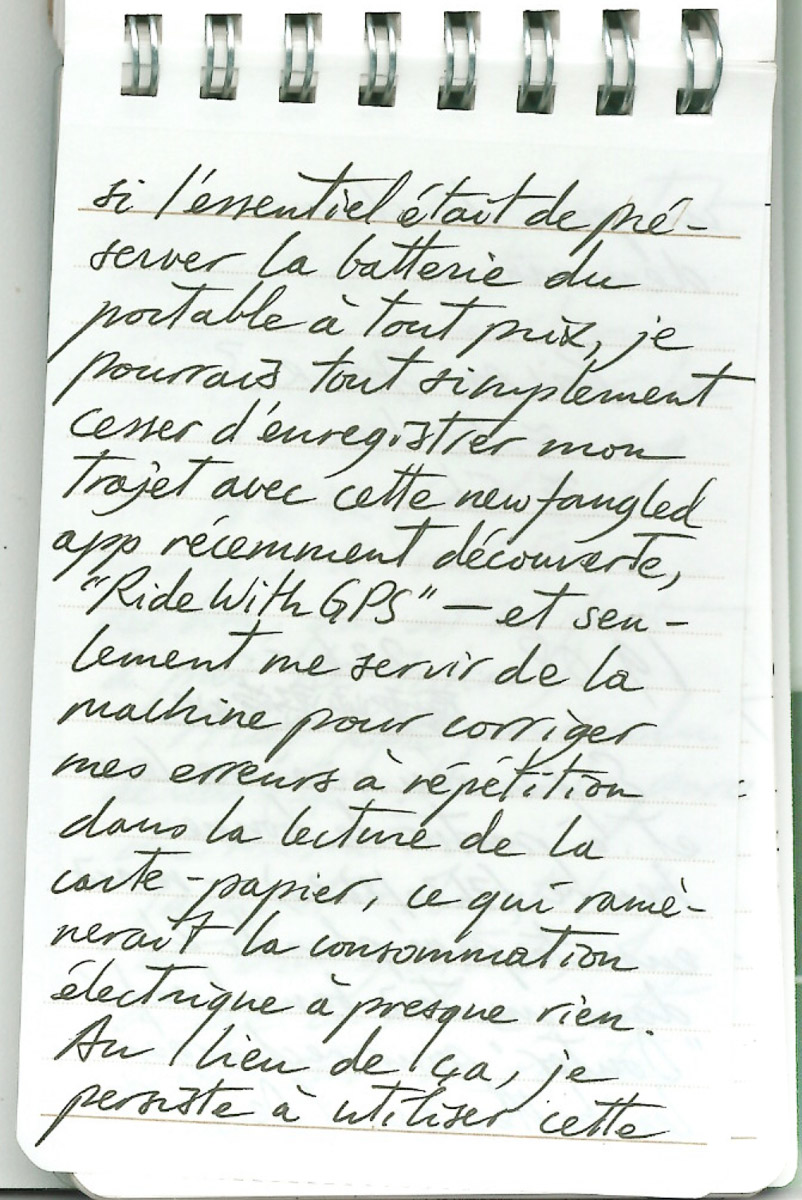 si l'essentiel était de pré-
server la batterie du
portable à tout prix, je
pourrais tout simplement
cesser d'enregistrer mon
trajet avec cette newfangled
app récemment découverte,
"Ride With GPS" — et seu-
lement me servir de la
machine pour corriger
mes erreurs à répétition
dans la lecture de la
carte-papier, ce qui ramè-
nerait la consommation
électrique à presque rien.
Au lieu de ça, je
persiste à utiliser cette